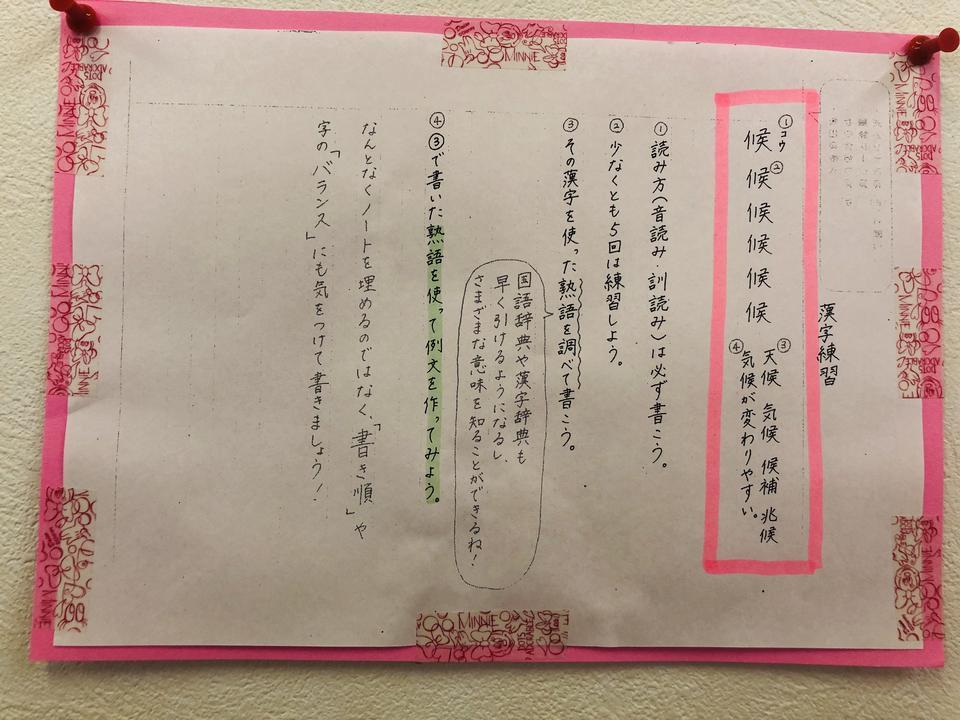 漢字練習
①コウ
候②候候候候候
③天候 気候 候補 兆候
④気候が変わりやすい。
①読み方(音読み 訓読み)は必ず書こう。
②少なくとも5回は練習しよう。
③その漢字を使った熟語を調べて書こう。
国語辞典や漢字辞典も
早く引けるようになるし、
さまざまな意味を知ることができるね!
④③で書いた熟語を使って例文を作ってみよう。
なんとなくノートを埋めるのではなく、「書き順」や
字の「バランス」にも気をつけて書きましょう!
MINNIE
DOTS
ADORABLE
MINNIE
MINNIE
MINNIE
MINNIE